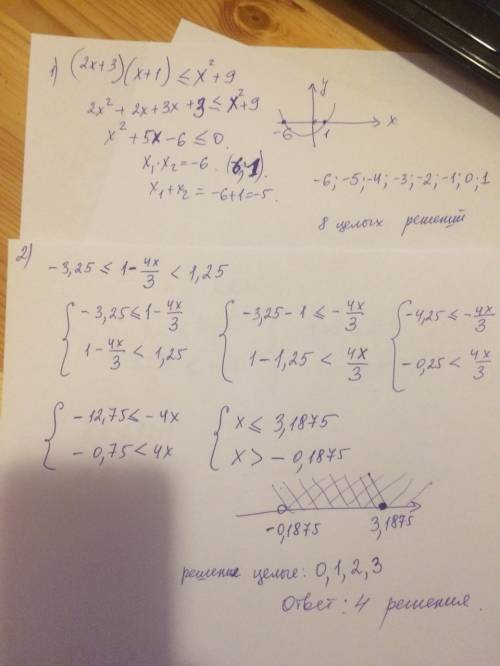 1) (2x+3)(x+1) ≤ x²+9
2x²+2x+3x+3 ≤ x²+9
x²+5x-6 ≤ 0
x₁·x₂ = -6
x₁+x₂ = -6+1 = -5.
y
-6 1 x
-6; -5; -4; -3; -2; -1; 0; 1
8 целых решений
2) -3,25 ≤ 1 - 4x/3 < 1,25
{ -3,25 ≤ 1 - 4x/3 { -3,25-1 ≤ -4x/3 { -4,25 ≤ -4x/3
1 - 4x/3 < 1,25 1-1,25 < 4x/3 -0,25 < 4x/3
{ -12,75 ≤ -4x { x ≤ 3,1875
-0,75 < 4x x > -0,1875
-0,1875 3,1875
решение целые: 0, 1, 2, 3
Ответ: 4 решения.